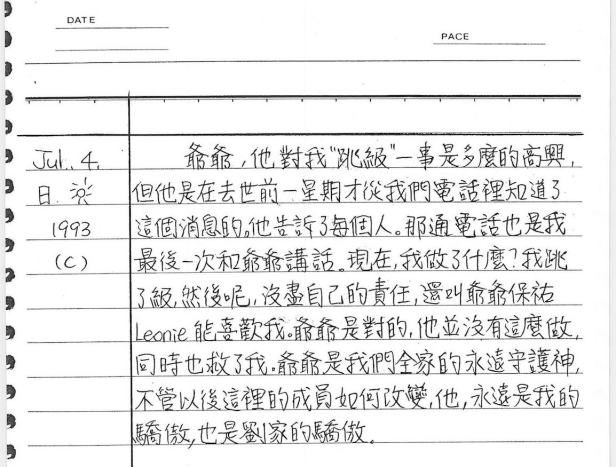 DATE
PACE
Jul. 4.
日.
1993
(C)
爺爺,他對我"跳級"一事是多麼的高興,
但他是在去世前一星期才從我們電話裡知道了
這個消息的。他告訴了每個人。那通電話也是我
最後一次和爺爺講話。現在,我做了什麼?我跳
了級,然後呢,沒盡自己的責任,還叫爺爺保祐
Leonie能喜歡我。爺爺是對的,他並沒有這麼做,
同時也救了我。爺爺是我們全家的永遠守護神,
不管以後這裡的成員如何改變,他,永遠是我的
驕傲,也是劉家的驕傲.